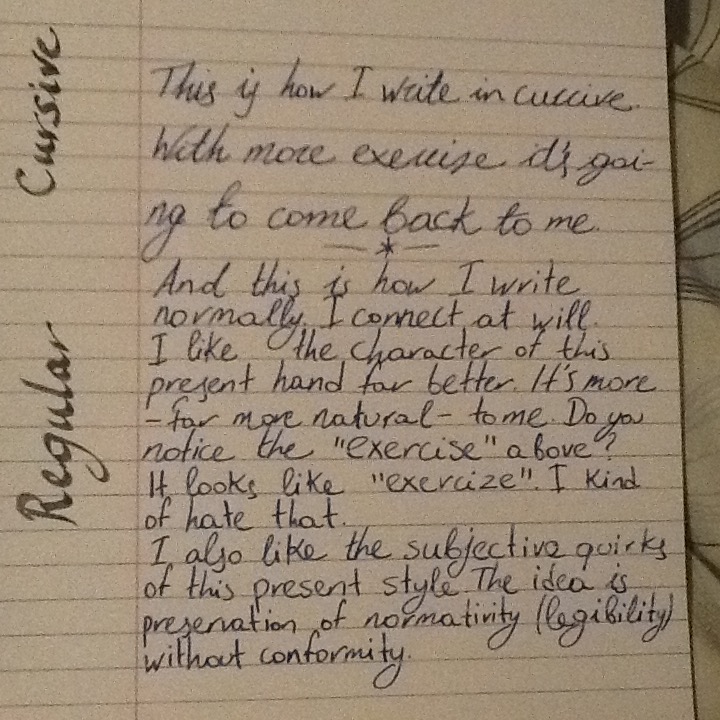 Cursive
This is how I write in cursive.
With more exercise it's goi-
ng to come back to me.
Regular
And this is how I write
normally. I connect at will.
I like the character of this
present hand far better. It's more
-far more natural- to me. Do you
notice the "exercise" above?
It looks like "exercize". I kind
of hate that.
I also like the subjective quirks
of this present style. The idea is
preservation of normativity (legibility)
without conformity.